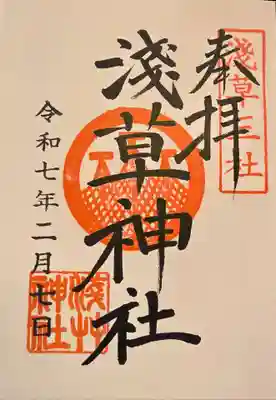 奉拝
淺草三社
淺草神社
令和七年二月七日
淺草神社